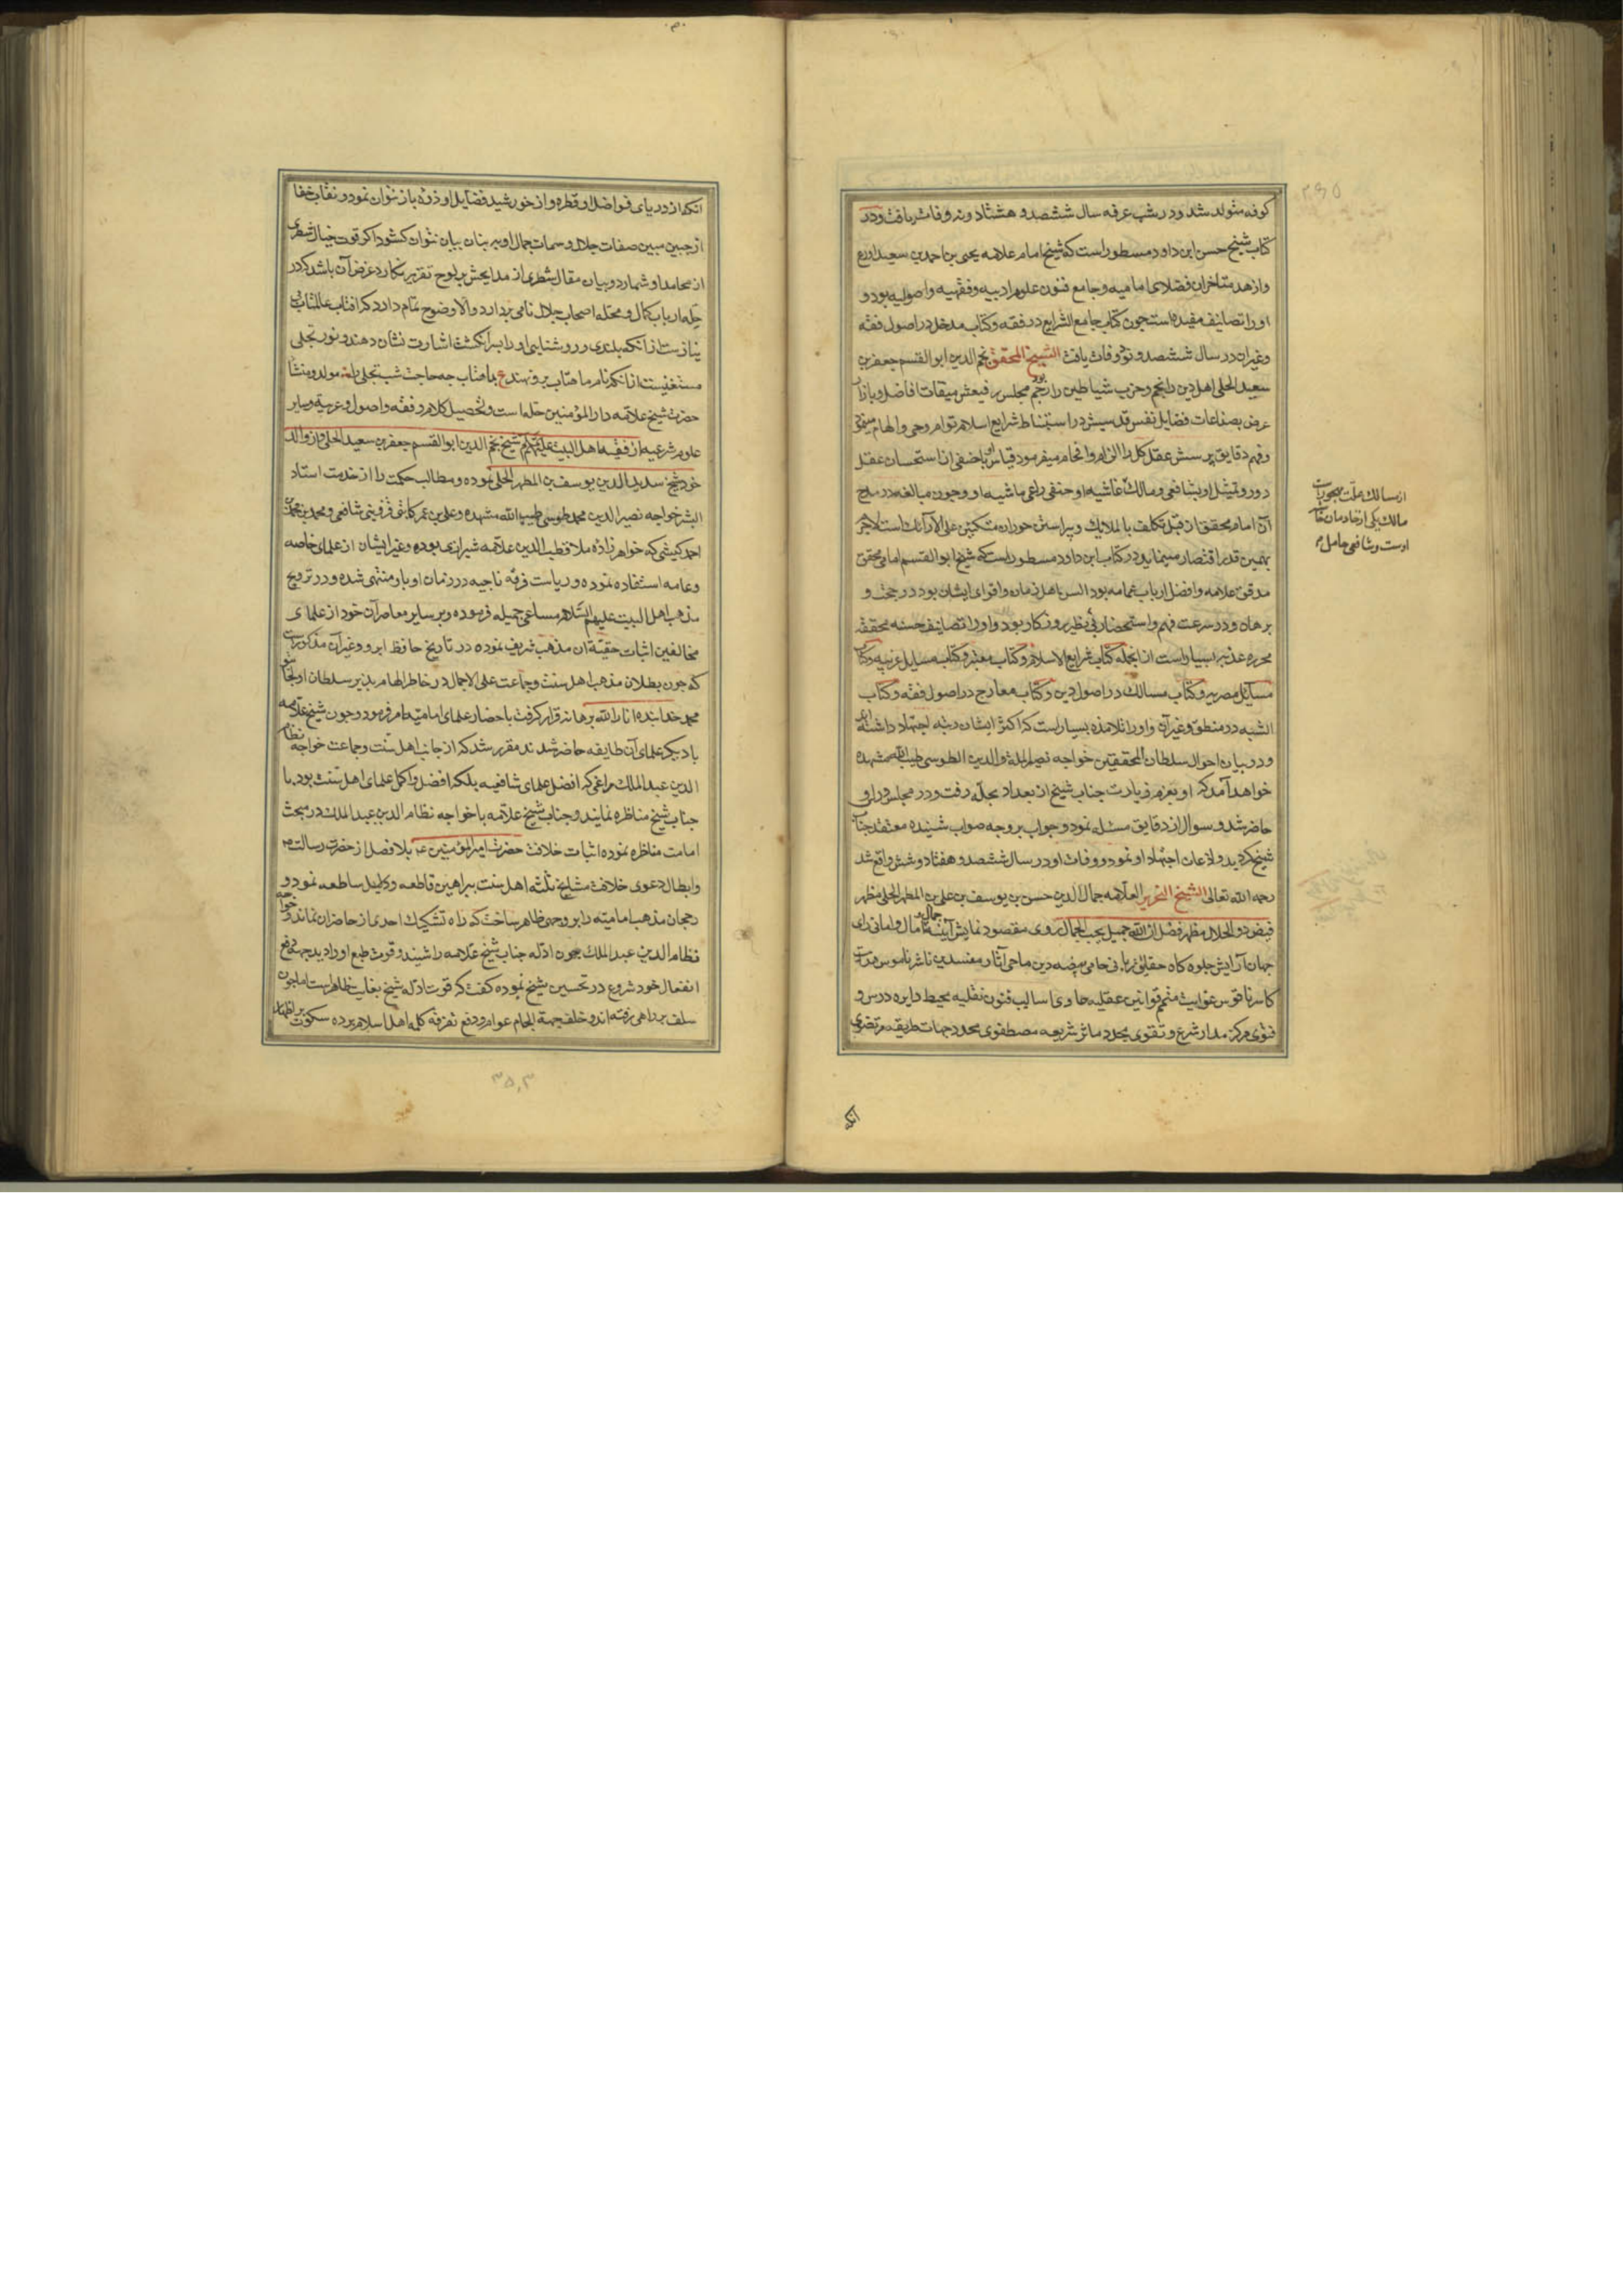 کوفه متولد شد و در شب عرفه سال ششصد و هشتاد و نه وفات یافت و در
کتاب شیخ حسن ابن داود مسطور است که شیخ امام علامه یحیی بن احمد بن سعید اورع
و ازهد متاخران فضلای امامیه و جامع فنون علوم ادبیه و فقهیه و اصولیه بود و
او را تصانیف مفیده است چون کتاب جامع الشرایع در فقه و کتاب مدخل در اصول فقه
و غیر آن در سال ششصد و نود وفات یافت الشیخ المحقق نجم الدین ابو القسم جعفر بن
سعید الحلی اهل دین را نجم و حزب شیاطین را رجم بود مجلس رفیعش میقات افاضل و بازار
عرض بضاعات فضایل نفس قدسیش در استنباط شرایع اسلام توام وحی و الهام
و فهم دقایق پرسش عقل کل را الزام و افحام میفرمود قیاس با خفی از استحسان عقل
دور و تمثیل او بشافعی و مالک غاشیه او حنفی راعی ماشیه او و چون مبالغه در مدح
آن امام محقق از قبیل تکلف بالملایک و پیراستن حوران متکئین علی الارائک است لاجرم
بهمین قدر اقتصار مینماید در کتاب ابن داود مسطور است که شیخ ابو القسم امامی محقق
مدقق علامه و افضل ارباب عمامه بود السن اهل زمان و اقوای ایشان بود در حجت و
برهان و در سرعت فهم و استحضار بی نظیر روزگار بود و او را تصانیف حسنه محققه
محرره عذبه بسیار است از آنجمله کتاب شرایع الاسلام و کتاب معتبر و کتاب مسایل غریبه و کتاب
مسائل مصریه و کتاب مسالک در اصول دین و کتاب معارج در اصول فقه و کتاب
الشبه در منطق و غیر آن و او را تلامذه بسیار است که اکثر ایشان رتبه اجتهاد داشته اند
و در بیان احوال سلطان المحققین خواجه نصیر الملة و الدین الطوسی طیب الله مشهده
خواهد آمد که او بعزم زیارت جناب شیخ از بغداد بحله رفت و در مجلس درس او
حاضر شد و سوال از دقایق مسئله نمود و جواب بر وجه صواب شنیده معتقد جناب
شیخ گردید و اذعان اجتهاد او نمود و وفات او در سال ششصد و هفتاد و شش واقع شد
رحمه الله تعالی الشیخ النحریر العلامه جمال الدین حسن بن یوسف بن علی بن المطهر الحلی مظهر
فیض ذو الجلال مظهر فضل ان الله جمیل یحب الجمال روی مقصود نمایش آیینه جمال آمال و امانی رای
جهان آرایش جلوه گاه حقایق ربانی حامی بیضه دین ماحی آثار مفسدین ناشر ناموس هدایت
کاسر ناقوس غوایت متمم قوانین عقلیه حاوی اسالیب فنون نقلیه محیط دایره درس و
فتوی مرکز مدار شرع و تقوی مجدد مآثر شریعه مصطفوی محدد جهات طریقه مرتضوی
مالک یکی از خادمان
اوست و شافعی حامل
آنکه
آنکه از دریای فواضل او قطره و از خورشید فضایل او ذره باز نتوان نمود و نقاب خفا
از جبین مبین صفات جلال و سمات جمال او به بنان بیان نتوان گشود اگر قوت خیال شطری
از محامد او شمارد و بیان مقال سطری از مدایحش بر لوح تقریر نگارد غرض آن باشد که در
حله ارباب کمال و محله اصحاب جلال نامی بردارد و الا وضوح تمام دارد که آفتاب عالمتاب بی
نیازست از آنکه بلندی و روشنایی او را بسر انگشت اشارت نشان دهند و نور تجلی
مستغنیست از آنکه نام ماهتاب برو نهند ع بماهتاب چه حاجت شب تجلی را مولد و منشأ
حضرت شیخ علامه دار المؤمنین حله است و تحصیل کلام و فقه و اصول و عربیه و سایر
علوم شرعیه از فقهاء اهل البیت علیهم السلام شیخ نجم الدین ابو القسم جعفر بن سعید الحلی و از والد
خود شیخ سدید الدین یوسف بن المطهر الحلی نموده و مطالب حکمت را از خدمت استاد
البشر خواجه نصیر الدین محمد طوسی طیب الله مشهده و علی بن عمر کاتبی قزوینی شافعی و محمد بن محمد بن
احمد کیشی که خواهرزاده ملا قطب الدین علامه شیرازی بوده و غیر ایشان از علمای خاصه
و عامه استفاده نموده و ریاست فرقه ناجیه در زمان او باو منتهی شده و در ترویج
مذهب اهل البیت علیهم السلام مساعی جمیله فرموده و بر سایر معاصران خود از علمای
مخالفین اثبات حقیة آن مذهب شریف نموده در تاریخ حافظ ابرو و غیر آن مذکورست
که چون بطلان مذهب اهل سنت و جماعت علی الاجمال در خاطر الهام پذیر سلطان اولجایتو
محمد خدابنده انار الله برهانه قرار گرفت باحضار علمای امامیه امر فرمود و چون شیخ علامه
با دیگر علمای آن طایفه حاضر شدند مقرر شد که از جانب اهل سنت و جماعت خواجه نظام
الدین عبد الملک مراغی که افضل علمای شافعیه بلکه افضل و اکمل علمای اهل سنت بود با
جناب شیخ مناظره نمایند و جناب شیخ علامه با خواجه نظام الدین عبد الملک در مبحث
امامت مناظره نموده اثبات خلافت حضرت امیر المؤمنین ع بلا فصل از حضرت رسالت ص
و ابطال دعوی خلافت مشایخ ثلثه اهل سنت ببراهین قاطعه و دلایل ساطعه نمود و
رجحان مذهب امامیه را بر وجهی ظاهر ساخت که راه تشکیک احدی از حاضران نماند و خواجه
نظام الدین عبد الملک چون ادله جناب شیخ علامه را شنید و قوت طبع او را دید جهة دفع
انفعال خود شروع در تحسین شیخ نموده گفت که قوت ادله شیخ بغایت ظاهر است اما چون
سلف براهی رفته اند و خلف جهة الجام عوام و دفع تفرقه کلمه اهل اسلام پرده سکوت بر